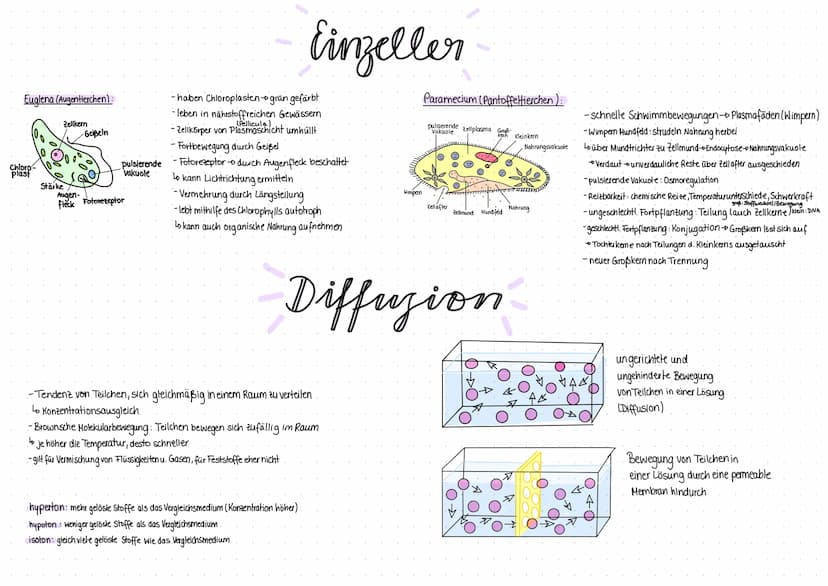 Einzeller
Euglena (Augentierchen):
Zellkern
Geißeln
Chloro-
plast
pulsierende
Vakuole
Stärke
Augen-
fleck
Fotorezeptor
- haben Chloroplasten → grün gefärbt
- leben in nährstoffreichen Gewässern
(Pellicula)
- Zellkörper von Plasmaschicht umhüllt
- Fortbewegung durch Geißel
- Fotorezeptor → durch Augenfleck beschattet
↳ kann Lichtrichtung ermitteln
- Vermehrung durch Längsteilung
- lebt mithilfe des Chlorophylls autotroph
↳ kann auch organische Nahrung aufnehmen
Paramecium (Pantoffeltierchen):
pulsierende
Vakuole
Zellplasma
Groß-
kern
Kleinkern
Nahrungsvakuole
Wimpern
Zellafter
Zellmund
Mundfeld
Nahrung
- schnelle Schwimmbewegungen → Plasmafäden (Wimpern)
- Wimpern Mundfeld: strudeln Nahrung herbei
↳ über Mundtrichter zu Zellmund → Endocytose → Nahrungsvakuole
→ Verdaut → unverdauliche Reste über Zellafter ausgeschieden
- pulsierende Vakuole: Osmoregulation
- Reizbarkeit: chemische Reize, Temperaturunterschiede, Schwerkraft
groß: Stoffwechsel/Bewegung
- ungeschlechtl. Fortpflanzung: Teilung (auch Zellkerne) klein: DNA
- geschlechtl. Fortpflanzung: Konjugation → Großkern löst sich auf
→ Tochterkerne nach Teilungen d. Kleinkerns ausgetauscht
- neuer Großkern nach Trennung
Diffusion
- Tendenz von Teilchen, sich gleichmäßig in einem Raum zu verteilen
↳ Konzentrationsausgleich
- Brownsche Molekularbewegung: Teilchen bewegen sich zufällig im Raum
↳ je höher die Temperatur, desto schneller
- gilt für Vermischung von Flüssigkeiten u. Gasen, für Feststoffe eher nicht
hyperton: mehr gelöste Stoffe als das Vergleichsmedium (Konzentration höher)
hypoton: weniger gelöste Stoffe als das Vergleichsmedium
isoton: gleich viele gelöste Stoffe wie das Vergleichsmedium
ungerichtete und
ungehinderte Bewegung
von Teilchen in einer Lösung
(Diffusion)
Bewegung von Teilchen in
einer Lösung durch eine permeable
Membran hindurch